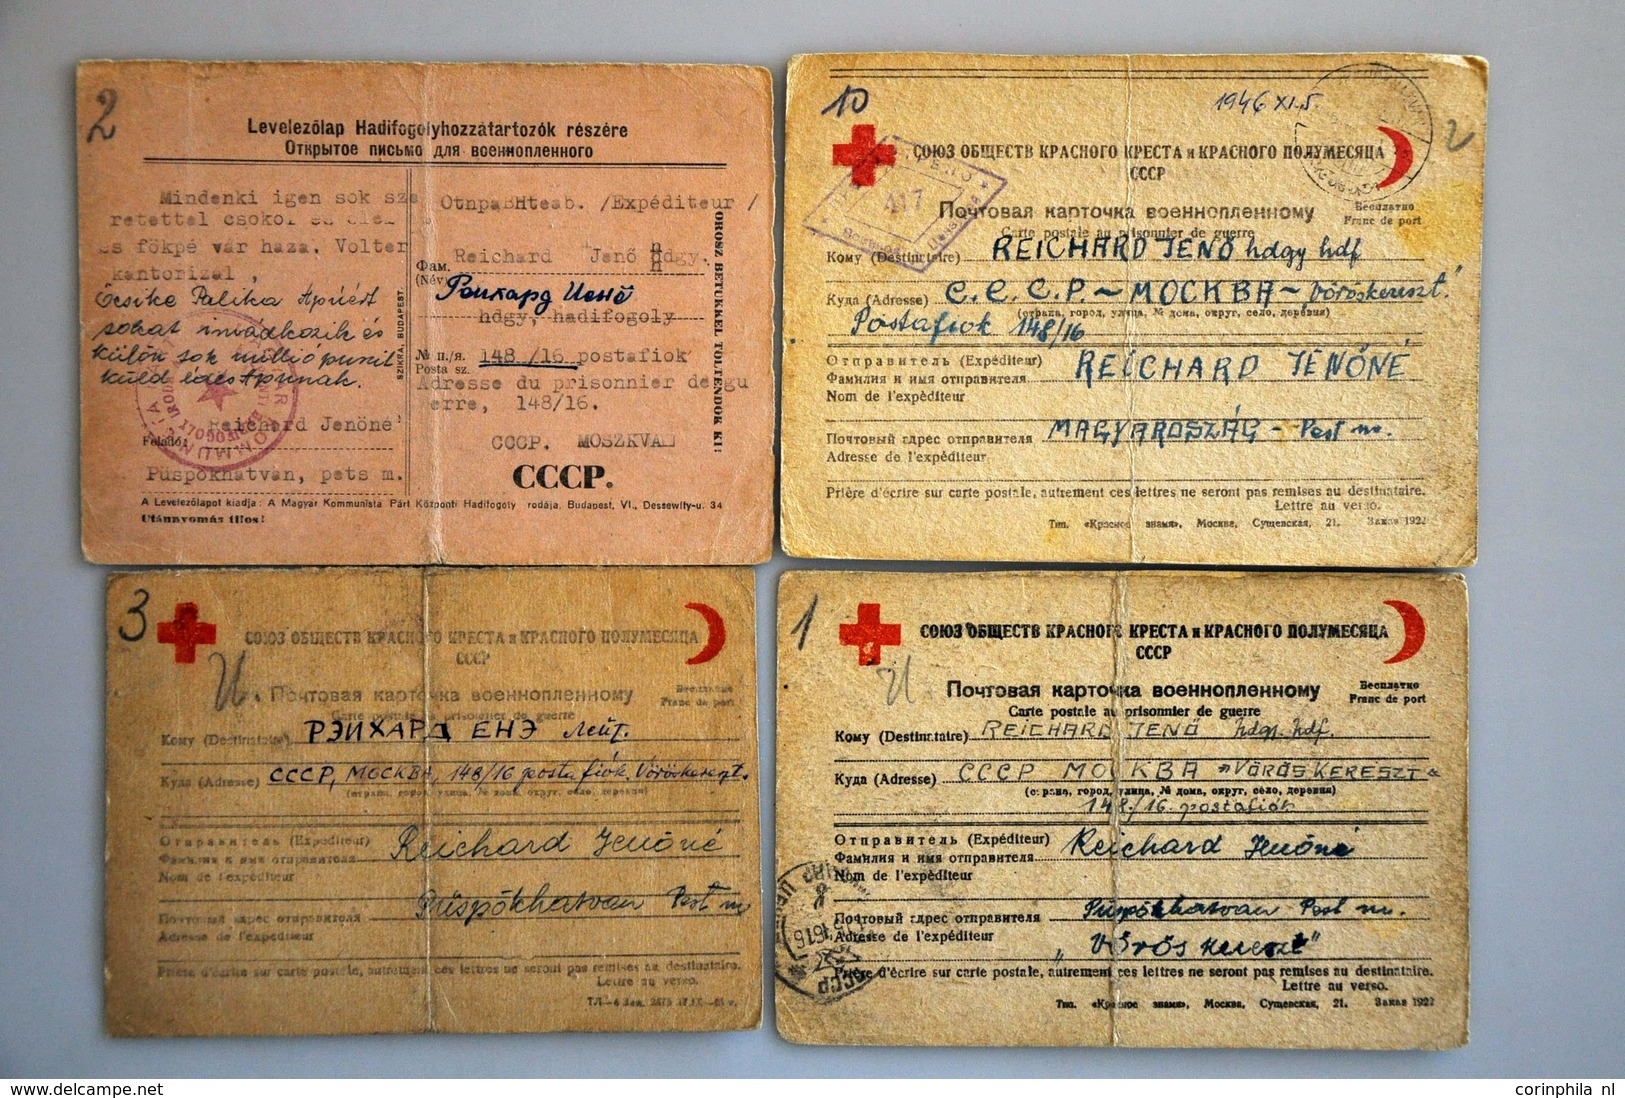 2
Levelezőlap Hadifogolyhozzátartozók részére
Открытое письмо для военнопленного
Mindenki igen sok sze
retettel csokol
és főkpé vár haza. Volter
kantorizal,
Öcsike Palika Apuért
sokat imádkozik és
külön sok millió puszit
küld édes Apunak.
Reichard Jenőné
Feladó:
Püspökhatvan, pets m.
SZIKRA, BUDAPEST.
Otnpавнteab. /Expéditeur/
Фам. Reichard Jenő hdgy.
(Név)
hdgy, hadifogoly
№ п./я. 148./16 postafiok
Posta sz.
Adresse du prisonnier de gu
erre, 148/16.
CCCP. MOSZKVA
СССР.
OROSZ BETŰKKEL TÖLTENDŐK KI!
A Levelezőlapot kiadja: A Magyar Kommunista Párt Központi Hadifogoly rodája, Budapest, VI., Dessewffy-u. 34
Utánnyomás tilos!
10
1946 XI.5.
СОЮЗ ОБЩЕСТВ КРАСНОГО КРЕСТА и КРАСНОГО ПОЛУМЕСЯЦА
СССР
417
Почтовая карточка военнопленному
Бесплатно
Carte postale au prisonnier de guerre
Franc de port
Кому (Destinataire) REICHARD JENŐ hdgy hdf
Куда (Adresse) C.C.C.P. ~ МОСКВА ~ "Vöröskereszt"
(страна, город, улица, № дома, округ, село, деревня)
Postafiok 148/16
Отправитель (Expéditeur) REICHARD JENŐNÉ
Фамилия и имя отправителя
Nom de l'expéditeur
Почтовый адрес отправителя MAGYARORSZÁG - Pest m.
Adresse de l'expéditeur
Prière d'écrire sur carte postale, autrement ces lettres ne seront pas remises au destinataire.
Lettre au verso.
Тип. «Красное знамя», Москва, Сущевская, 21. Заказ 1922
3
СОЮЗ ОБЩЕСТВ КРАСНОГО КРЕСТА и КРАСНОГО ПОЛУМЕСЯЦА
СССР
И.
Почтовая карточка военнопленному
Бесплатно
Carte postale au prisonnier de guerre
Franc de port
Кому (Destinataire) РЭЙХАРД ЕНЭ лейт.
Куда (Adresse) СССР, МОСКВА, 148/16 postafiók, Vöröskereszt.
(страна, город, улица, № дома, округ, село, деревня)
Отправитель (Expéditeur) Reichard Jenőné
Фамилия и имя отправителя
Nom de l'expéditeur
Püspökhatvan Pest m
Почтовый адрес отправителя
Adresse de l'expéditeur
Prière d'écrire sur carte postale, autrement ces lettres ne seront pas remises au destinataire.
Lettre au verso.
1
СОЮЗ ОБЩЕСТВ КРАСНОГО КРЕСТА и КРАСНОГО ПОЛУМЕСЯЦА
СССР
И
Почтовая карточка военнопленному
Бесплатно
Carte postale au prisonnier de guerre
Franc de port
Кому (Destinataire) REICHARD JENŐ hdgy. hdf.
Куда (Adresse) CCCP МОСКВА "VÖRÖSKERESZT"
(страна, город, улица, № дома, округ, село, деревня)
148./16. postafiók
Отправитель (Expéditeur) Reichard Jenőné
Фамилия и имя отправителя
Nom de l'expéditeur
Püspökhatvan Pest m.
Почтовый адрес отправителя
Adresse de l'expéditeur
"Vöröskereszt"
Prière d'écrire sur carte postale, autrement ces lettres ne seront pas remises au destinataire.
Lettre au verso.
Тип. «Красное знамя», Москва, Сущевская, 21. Заказ 1922
СССР
corinphila nl